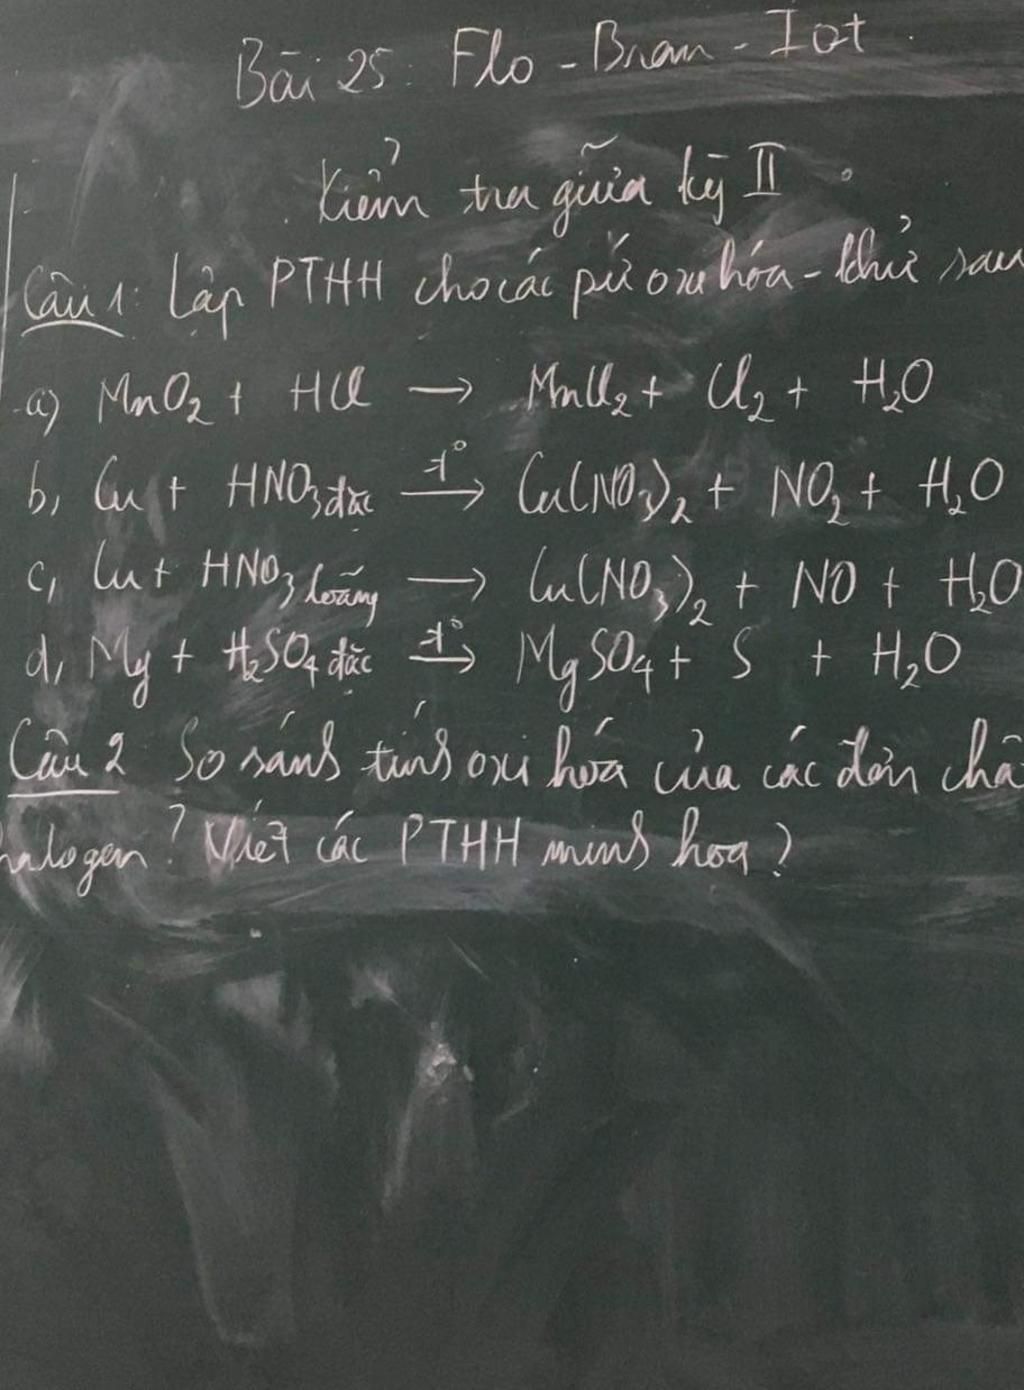 Bài 25: Flo - Brom - Iot
Kiểm tra giữa kỳ II
Câu 1: Lập PTHH cho các pứ oxi hóa - khử sau
a) MnO₂ + HCl → MnCl₂ + Cl₂ + H₂O
b, Cu + HNO₃ đặc t° → Cu(NO₃)₂ + NO₂ + H₂O
c, Cu + HNO₃ loãng → Cu(NO₃)₂ + NO + H₂O
d, Mg + H₂SO₄ đặc t° → MgSO₄ + S + H₂O
Câu 2 So sánh tính oxi hóa của các đơn châ
halogen? Viết các PTHH minh hoạ?